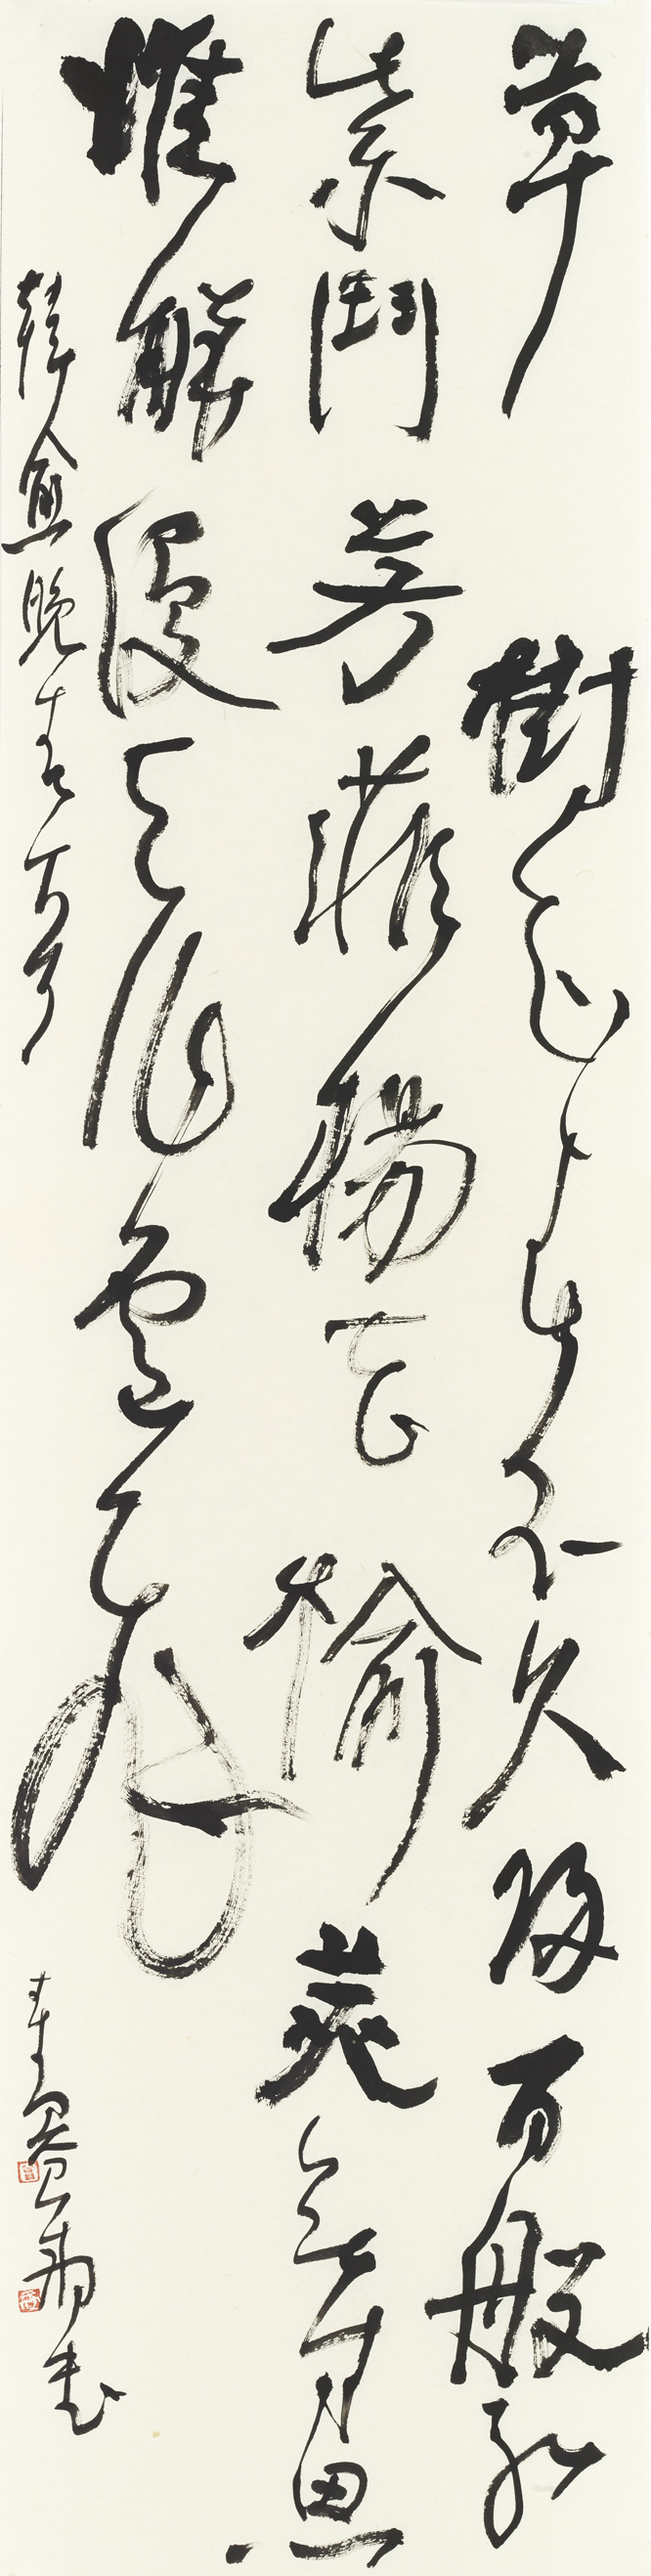 草樹知春不久歸百般紅
紫鬥芳菲楊花榆莢無才思
惟解漫天作雪飛
韓愈晚春
書